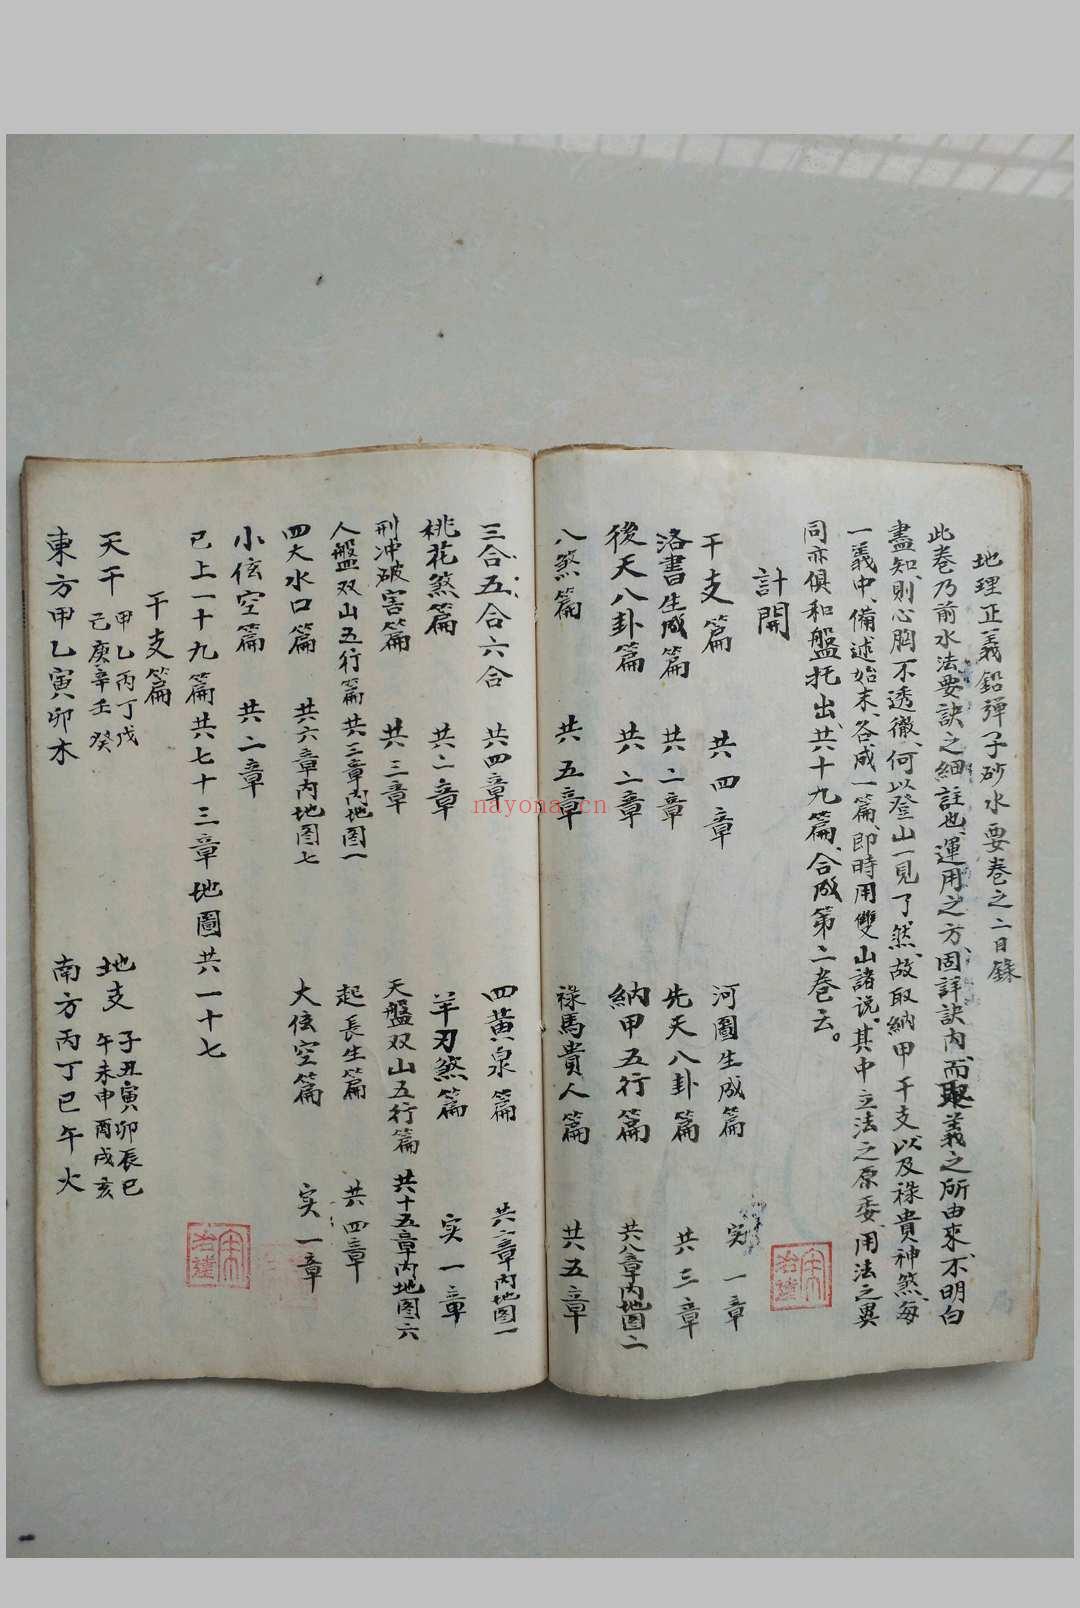 地理正義鉛彈子砂水要卷之二目錄
此卷乃前水法要訣之細註也、運用之方、固詳訣內、而取義之所由來、不明白
盡知、則心胸不透徹、何以登山一見了然、故取納甲干支以及祿貴神煞、每
一義中、備述始末、各成一篇、即時用雙山諸说、其中立法之原委、用法之異
同亦俱和盤托出、共十九篇、合成第二卷云。
計開
干支篇 共四章 河圖生成篇 实一章
洛書生成篇 共二章 先天八卦篇 共三章
後天八卦篇 共二章 納甲五行篇 共八章內地图二
八煞篇 共五章 祿馬貴人篇 共五章
三合五合六合 共四章 四黃泉篇 共六章內地图一
桃花煞篇 共二章 羊刃煞篇 实一章
刑冲破害篇 共三章 天盤双山五行篇 共十五章內地图六
人盤双山五行篇 共三章內地图一 起長生篇 共四章
四大水口篇 共六章內地图七 大伭空篇 实一章
小伭空篇 共二章
已上一十九篇共七十三章地圖共一十七
干支篇
天干 甲乙丙丁戊己庚辛壬癸 地支 子丑寅卯辰巳午未申酉戌亥
東方甲乙寅卯木 南方丙丁巳午火
nayona.cn